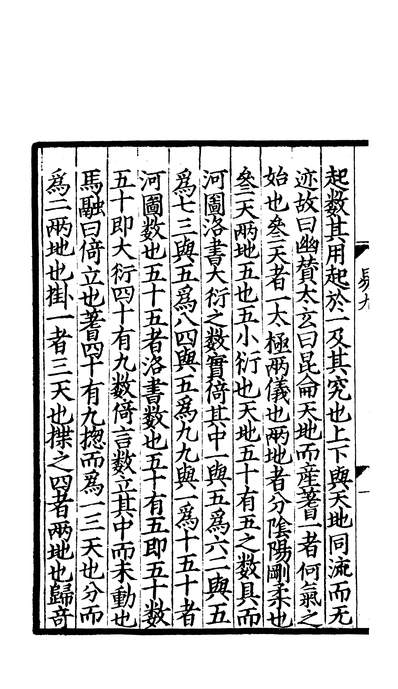 起數其用起於一及其究也上下與天地同流而无
迹故曰幽贊太玄曰昆侖天地而産蓍一者何氣之
始也叁天者一太極兩儀也兩地者分陰陽剛柔也
叁天兩地五也五小衍也天地五十有五之數具而
河圖洛書大衍之數實倚其中一與五爲六二與五
爲七三與五爲八四與五爲九九與一爲十五十者
河圖數也五十五者洛書數也五十有五即五十數
五十即大衍四十有九數倚言數立其中而未動也
馬融曰倚立也蓍四十有九揔而爲一三天也分而
爲二兩地也掛一者三天也揲之四者兩地也歸竒
易九
一